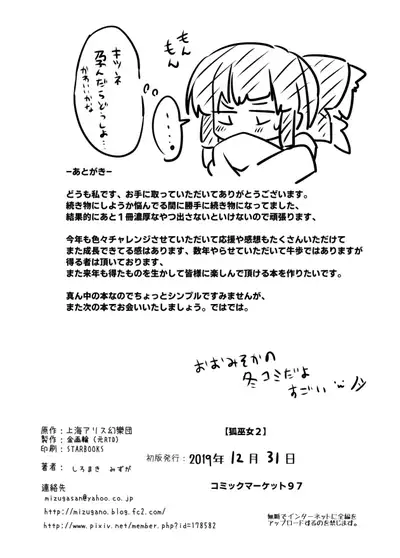 もん
もん
キツネ
孕んだらどうしよ…
かわいいかな
・・・。
ーあとがきー
どうも私です、お手に取っていただいてありがとうございます。
続き物にしようか悩んでる間に勝手に続き物になってました、
結果的にあと１冊濃厚なやつ出さないといけないので頑張ります、
今年も色々チャレンジさせていただいて応援や感想もたくさんいただけて
また成長できてる感はあります、数年やらせていただいて牛歩ではありますが
得る者は頂いております、
また来年も得たものを生かして皆様に楽しんで頂ける本を作りたいです。
真ん中の本なのでちょっとシンプルですみませんが、
また次の本でお会いいたしましょう。ではでは。
おおみそかの
冬コミだよ
すごい
原作：上海アリス幻樂団
製作：金画輪（元RTD）
印刷：STARBOOKS
著者： しろまき みずが
連絡先
mizugasan@yahoo.co.jp
http://mizugano.blog.fc2.com/
http://www.pixiv.net/member.php?id=178582
【狐巫女２】
初版発行：2019年 12月 31日
コミックマーケット９７
無断でインターネットに全編を
アップロードするのを禁じます。